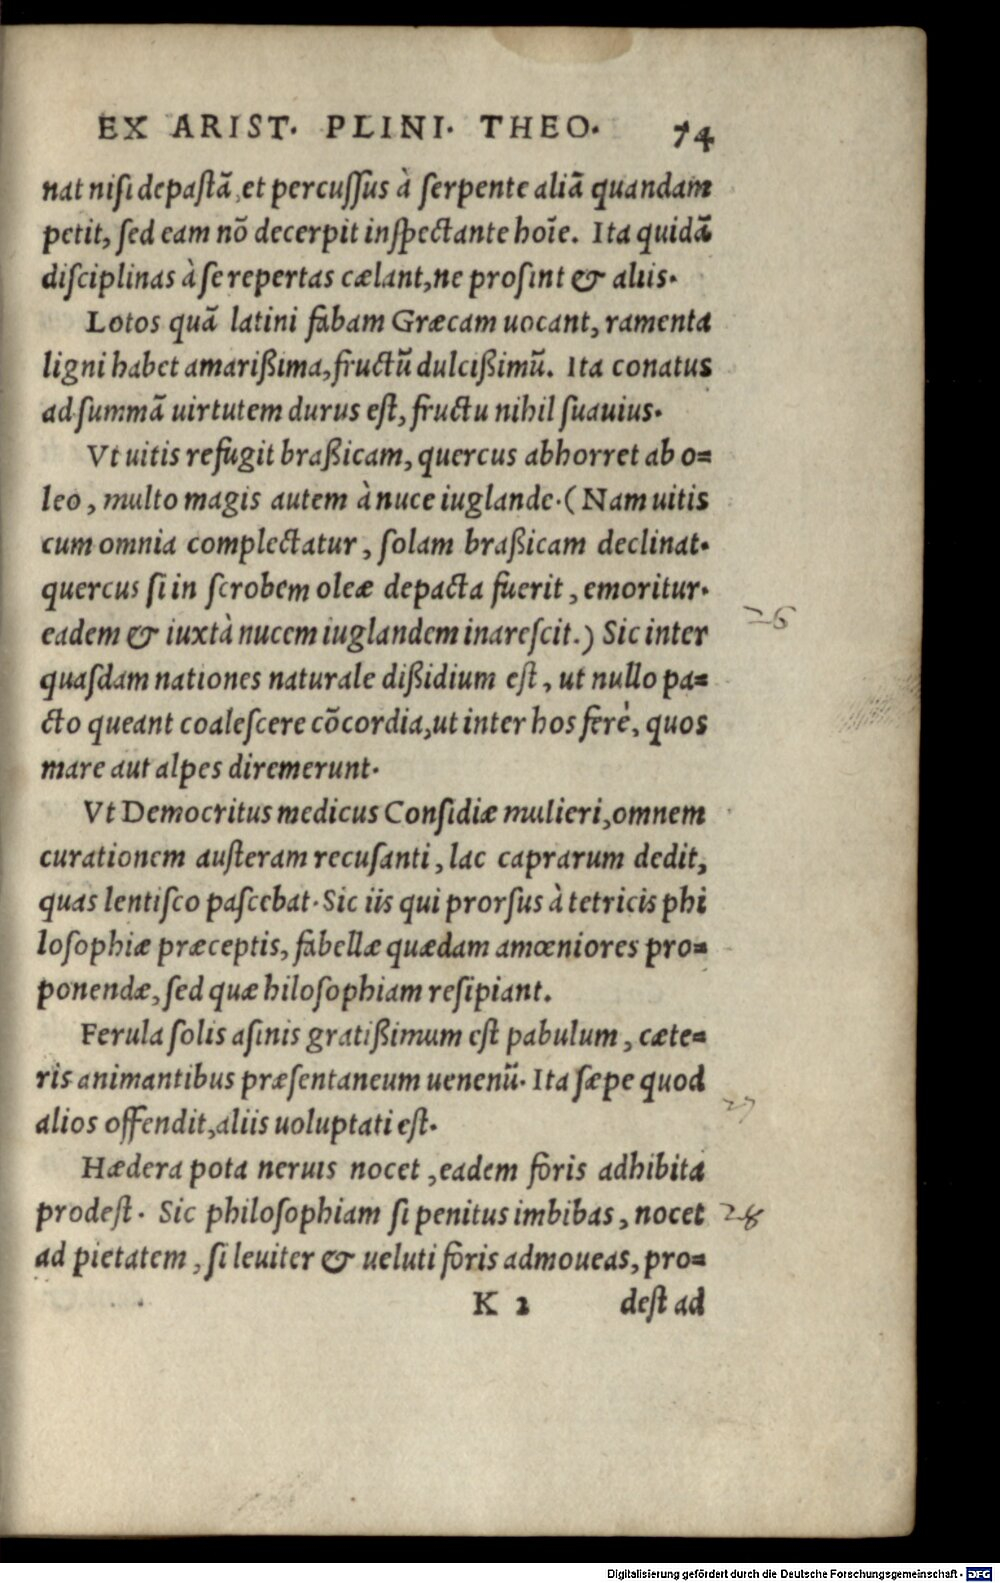 EX ARIST. PLINI. THEO. 74
nat nisi depastã, et percussus à serpente aliã quandam
petit, sed eam nõ decerpit inspectante hoĩe. Ita quidã
disciplinas à se repertas cælant, ne prosint & aliis.
Lotos quã latini fabam Græcam uocant, ramenta
ligni habet amarißima, fructũ dulcißimũ. Ita conatus
ad summã uirtutem durus est, fructu nihil suauius.
Vt uitis refugit braßicam, quercus abhorret ab o=
leo, multo magis autem à nuce iuglande. (Nam uitis
cum omnia complectatur, solam braßicam declinat.
quercus si in scrobem oleæ depacta fuerit, emoritur.
eadem & iuxtà nucem iuglandem inarescit.) Sic inter
26
quasdam nationes naturale dißidium est, ut nullo pa=
cto queant coalescere cõcordia, ut inter hos ferè, quos
mare aut alpes diremerunt.
Vt Democritus medicus Considiæ mulieri, omnem
curationem austeram recusanti, lac caprarum dedit,
quas lentisco pascebat. Sic iis qui prorsus à tetricis phi
losophiæ præceptis, fabellæ quædam amœniores pro=
ponendæ, sed quæ hilosophiam resipiant.
Ferula solis asinis gratißimum est pabulum, cæte=
ris animantibus præsentaneum uenenũ. Ita sæpe quod
27
alios offendit, aliis uoluptati est.
Hædera pota neruis nocet, eadem foris adhibita
prodest. Sic philosophiam si penitus imbibas, nocet 28
ad pietatem, si leuiter & ueluti foris admoueas, pro=
K 2 dest ad
Digitalisierung gefördert durch die Deutsche Forschungsgemeinschaft - DFG